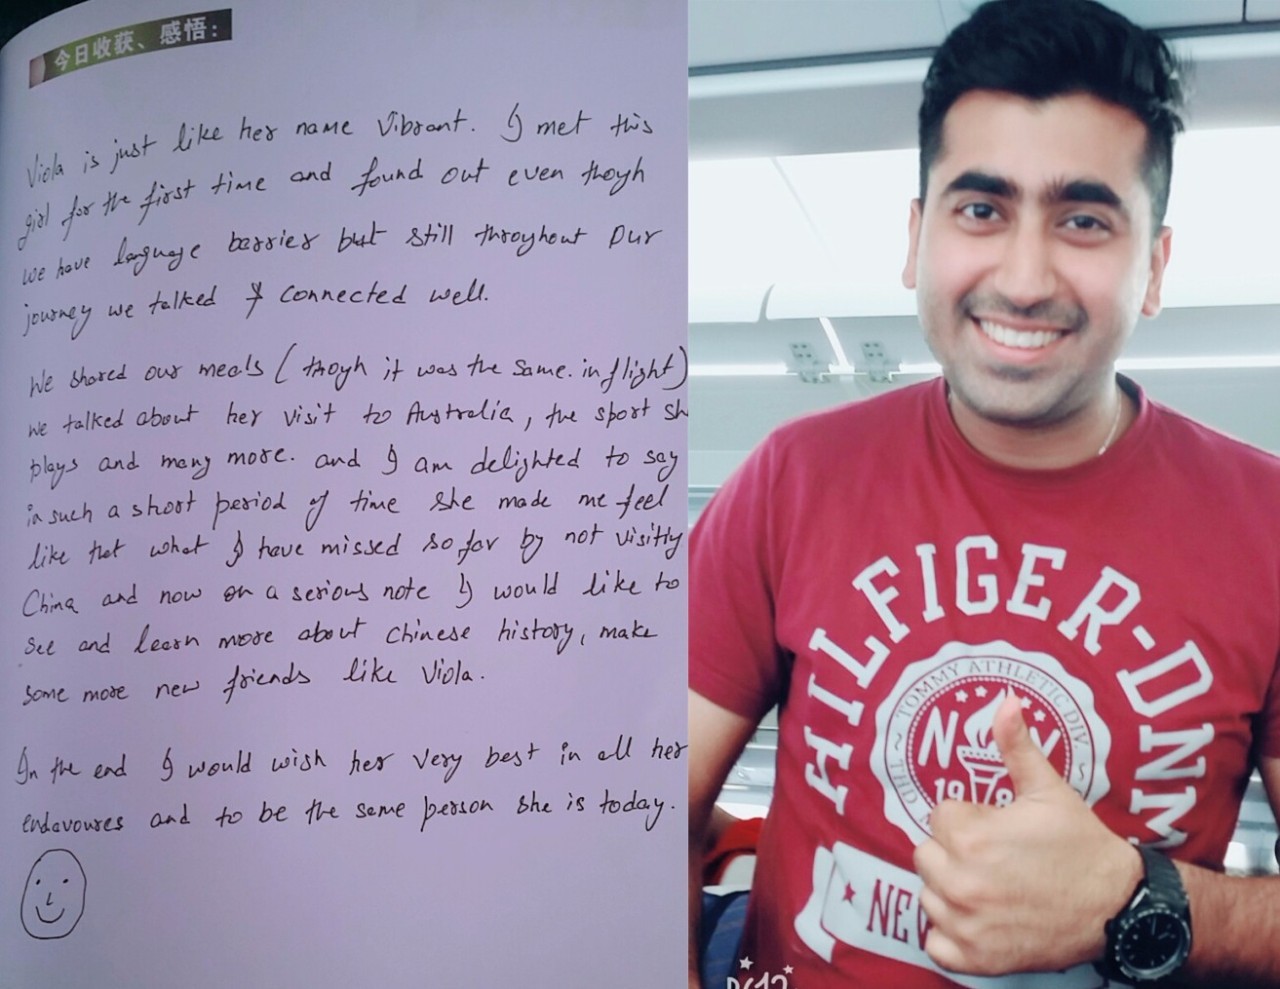 今日收获、感悟：
Viola is just like her name Vibrant. I met this
girl for the first time and found out even thoygh
we have language barrier but still throyhout our
journey we talked & connected well.
We shared our meals ( thoygh it was the same. in flight)
we talked about her visit to Australia, the sport sh
plays and many more. and I am delighted to say
in such a short period of time she made me feel
like that what I have missed so far by not visiting
China and now on a serious note I would like to
see and learn more about chinese history, make
some more new friends like Viola.
In the end I would wish her very best in all her
endavoures and to be the same person she is today.
HILFIGER-DNM
TOMMY ATHLETIC DIV.
N Y
19 8
THD
NEW
B612